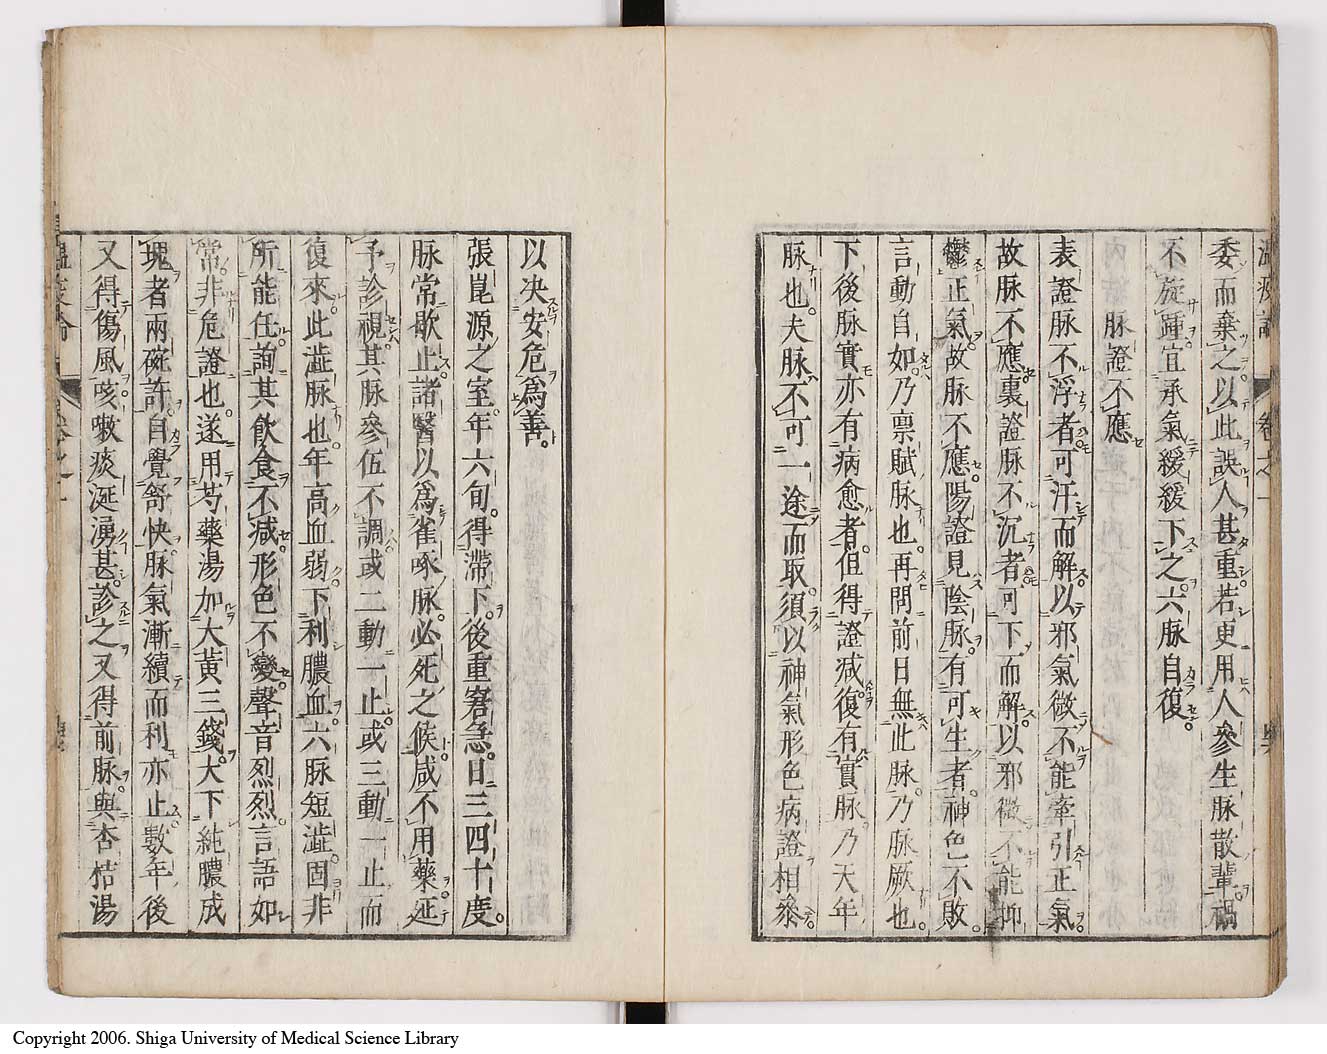 溫疫論 卷之一
委而棄之以此誤人甚重若更用人參生脉散輩禍
不旋踵宜承氣緩緩下之六脉自復
脉證不應
表證脉不浮者可汗而解以邪氣微不能牽引正氣
故脉不應裏證脉不沉者可下而解以邪微不能抑
鬱正氣故脉不應陽證見陰脉有可生者神色不敗
言動自如乃禀賦脉也再問前日無此脉乃脉厥也
下後脉實亦有病愈者但得證減復有實脉乃天年
脉也夫脉不可一途而取須以神氣形色病證相參
以决安危爲善
張崑源之室年六旬得滯下後重窘急日三四十度
脉常歇止諸醫以爲雀啄脉必死之候咸不用藥延
予診視其脉參伍不調或二動一止或三動一止而
復來此澁脉也年高血弱下利膿血六脉短澁固非
所能任詢其飮食不减形色不變聲音烈烈言語如
常非危證也遂用芍藥湯加大黃三錢大下純膿成
塊者兩碗許自覺舒快脉氣漸續而利亦止數年後
又得傷風咳嗽痰涎湧甚診之又得前脉與杏桔湯
Copyright 2006. Shiga University of Medical Science Library